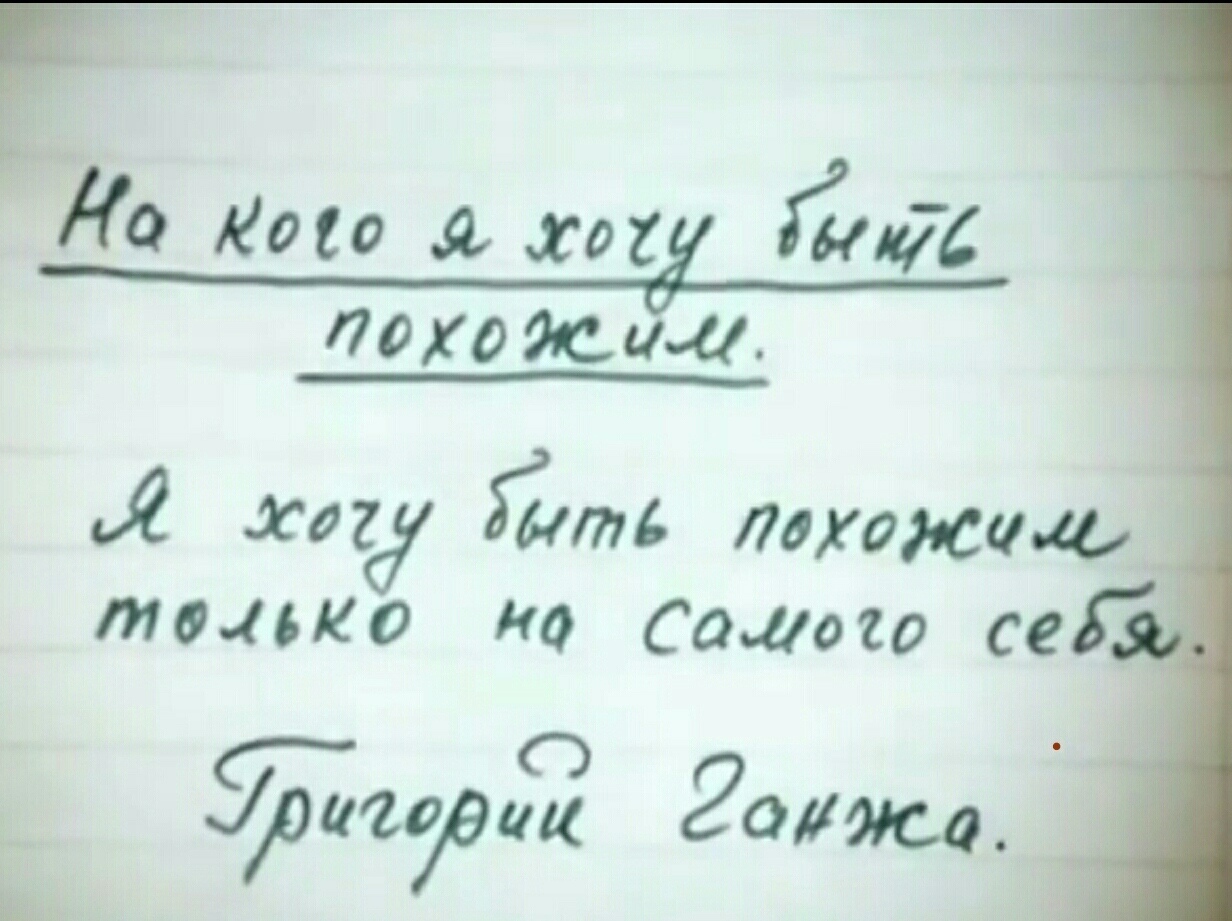 На кого я хочу быть
похожим.
Я хочу быть похожим
только на самого себя.
Григорий Ганжа.